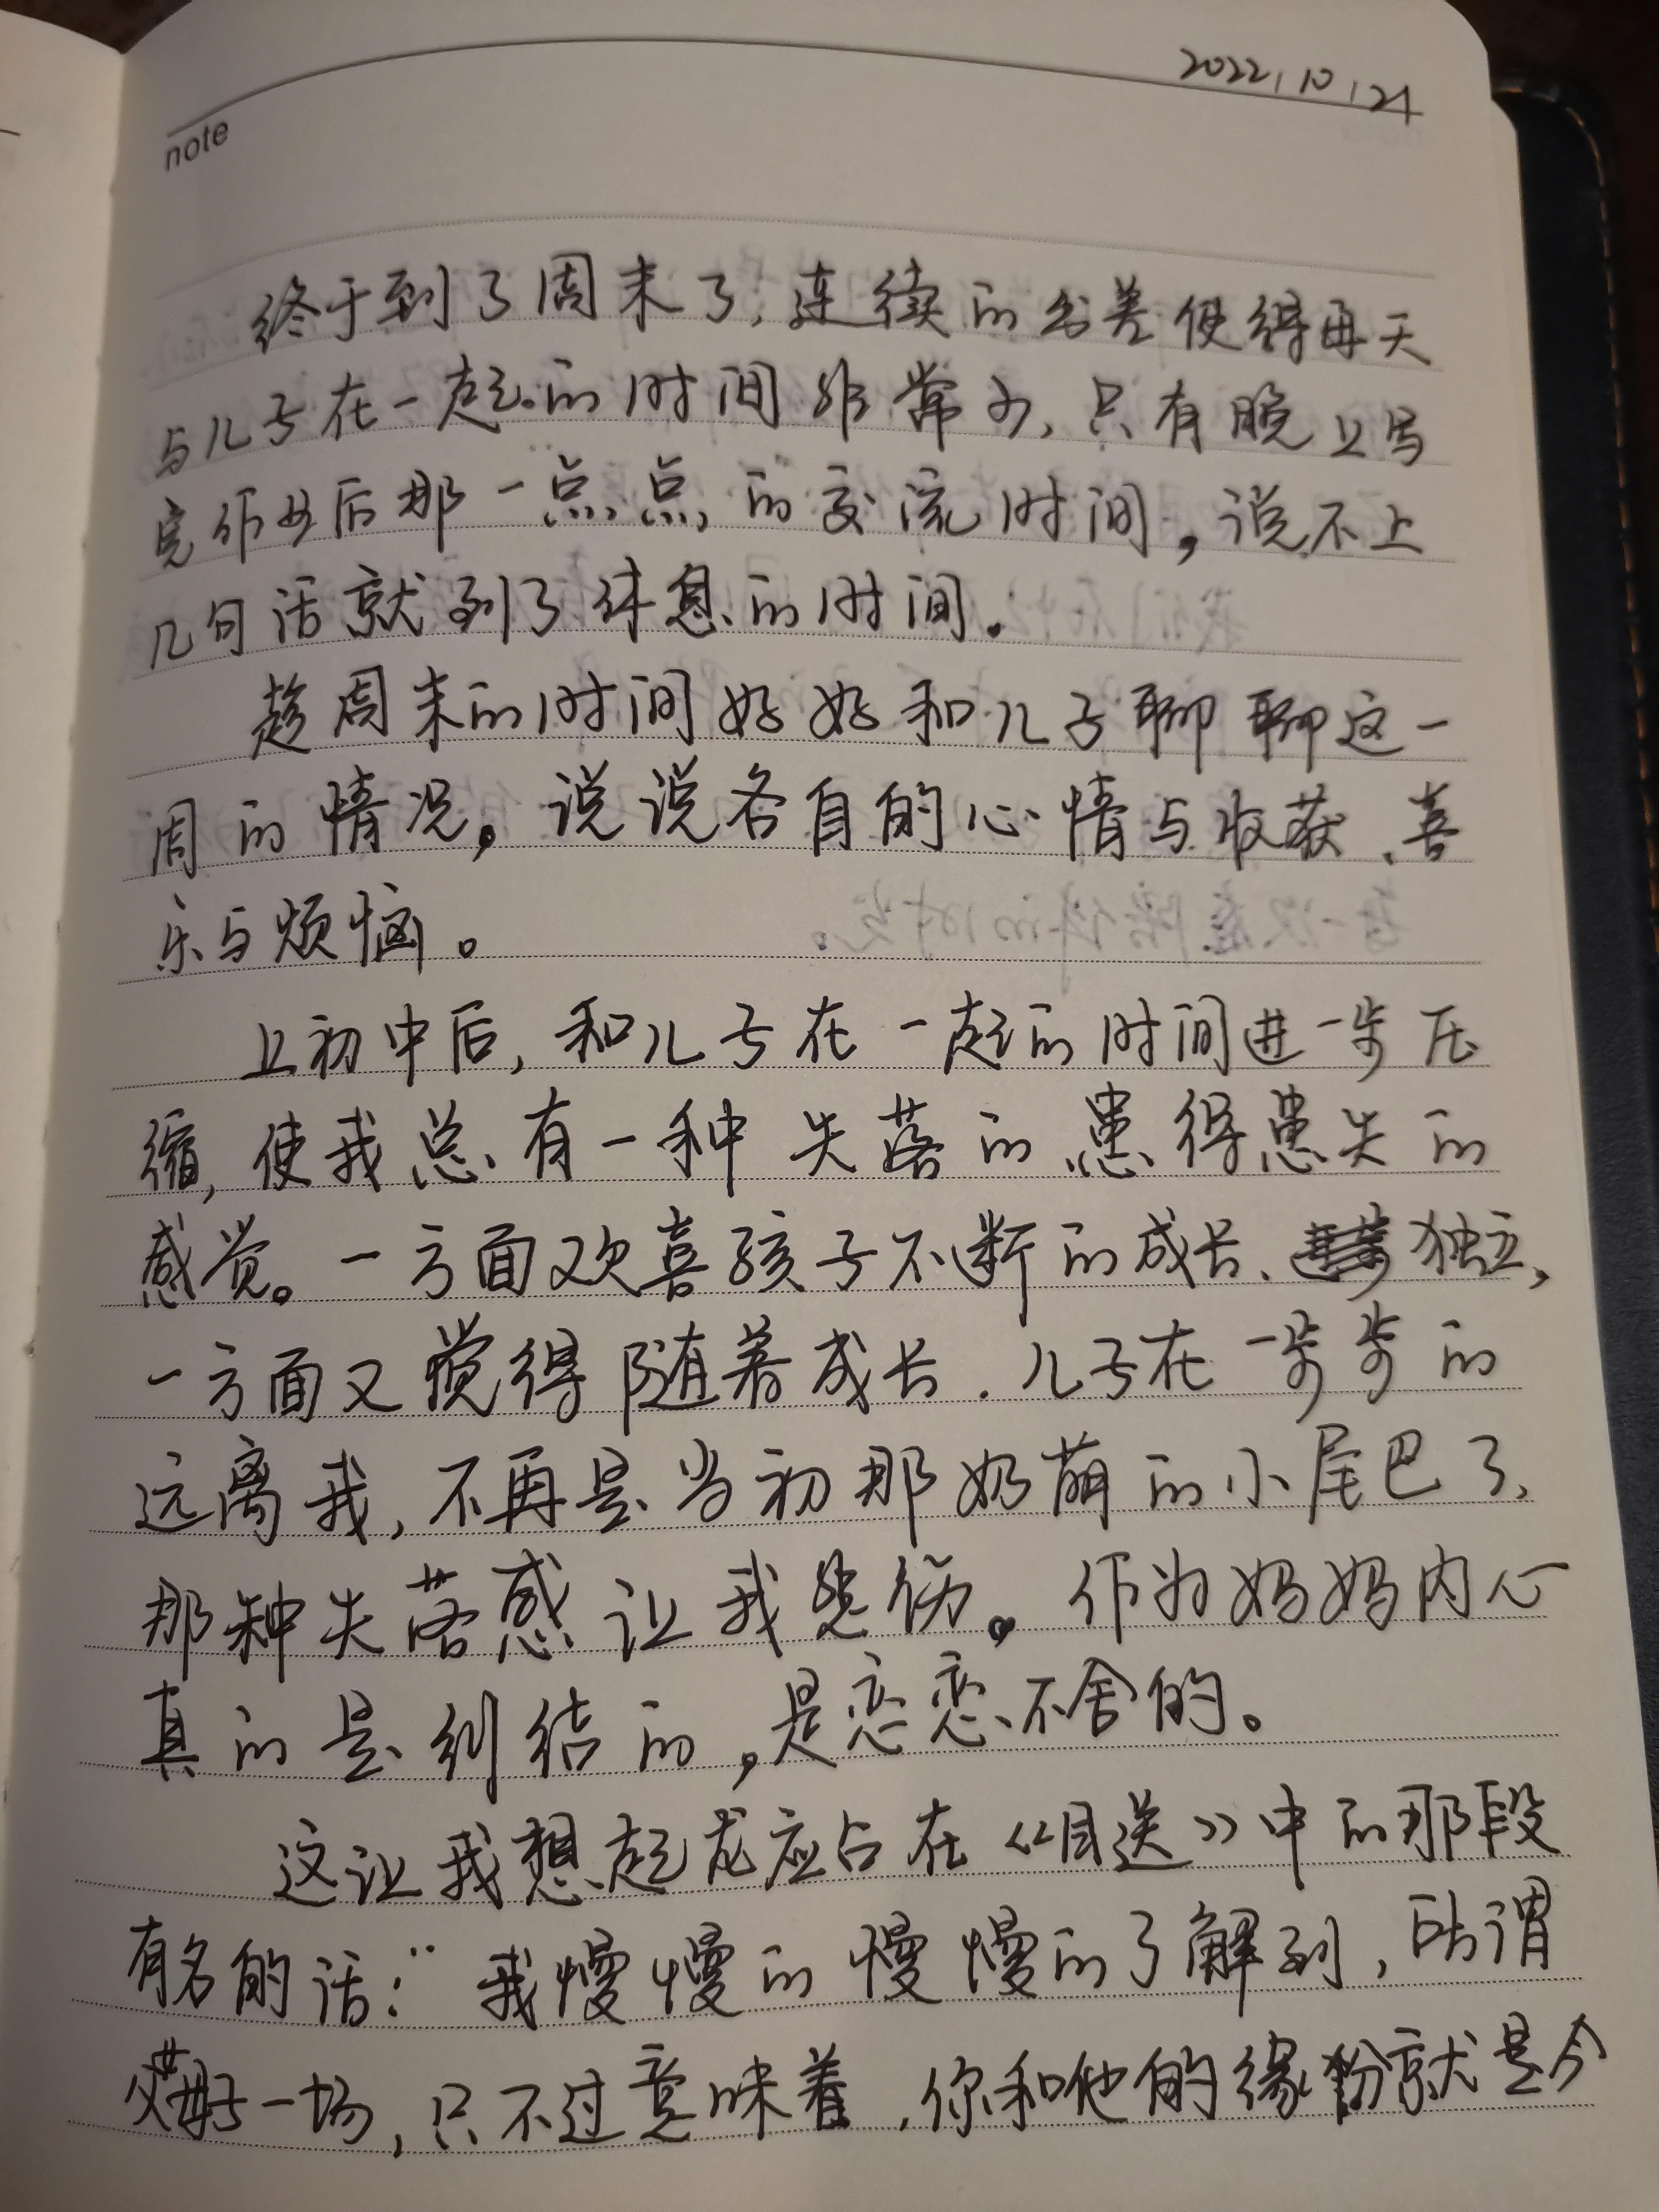 2022.10.24
note
终于到了周末了,连续的出差使得每天
与儿子在一起的时间非常少,只有晚上写
完作业后那一点点的交流时间,说不上
几句话就到了休息的时间。
趁周末的时间好好和儿子聊聊这一
周的情况,说说各自的心情与收获、喜
乐与烦恼。
上初中后,和儿子在一起的时间进一步压
缩,使我总有一种失落的患得患失的
感觉。一方面欢喜孩子不断的成长、独立,
一方面又觉得随着成长,儿子在一步步的
远离我,不再是当初那奶萌的小尾巴了,
那种失落感让我悲伤。作为妈妈内心
真的是纠结的,是恋恋不舍的。
这让我想起龙应台在《目送》中的那段
有名的话:“我慢慢的慢慢的了解到,所谓
父母子一场,只不过意味着,你和他的缘分就是今